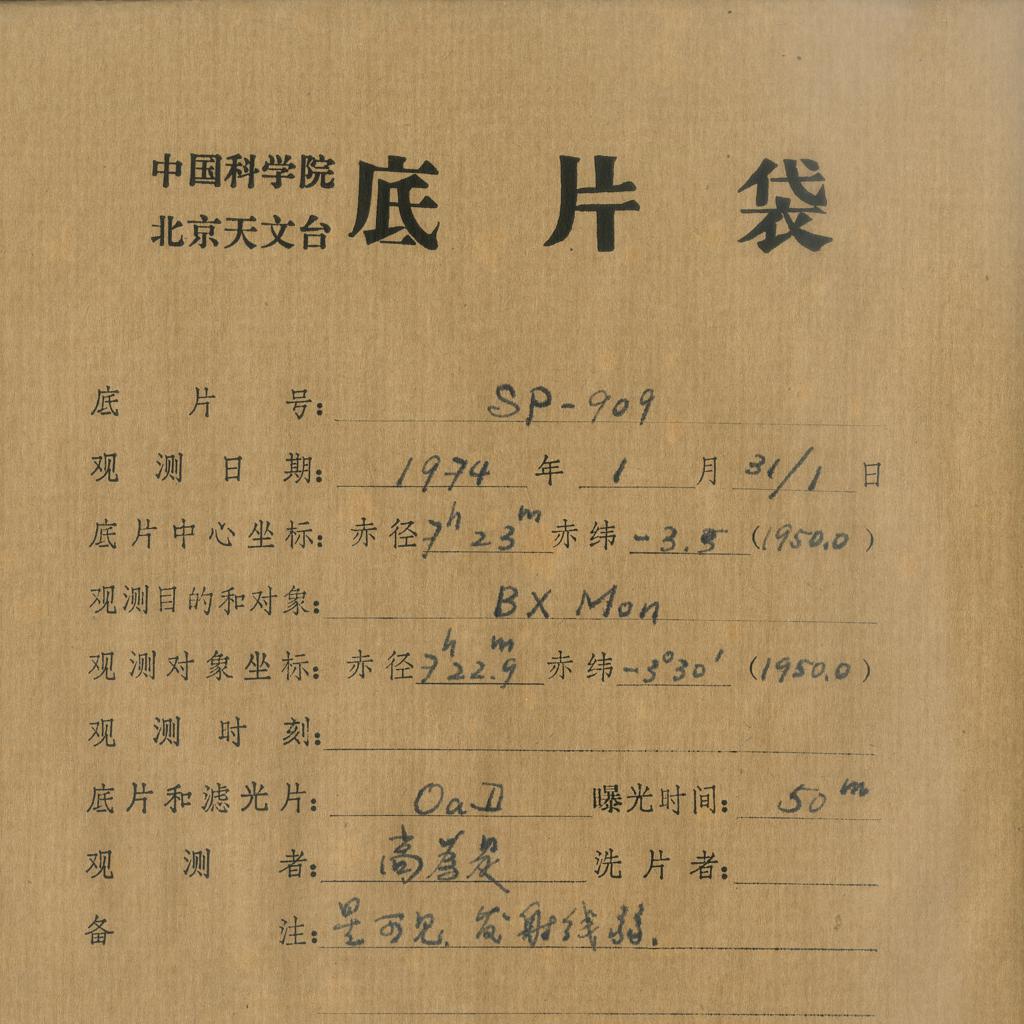 中国科学院
北京天文台
底片袋
底片号: SP-909
观测日期: 1974年1月31/1日
底片中心坐标: 赤径7h23m赤纬-3.5(1950.0)
观测目的和对象: BX Mon
观测对象坐标: 赤径7h22m.9赤纬-3°30′(1950.0)
观测时刻:
底片和滤光片: OaII 曝光时间: 50m
观测者: 高 洗片者:
备注: 星可见. 发射线弱.